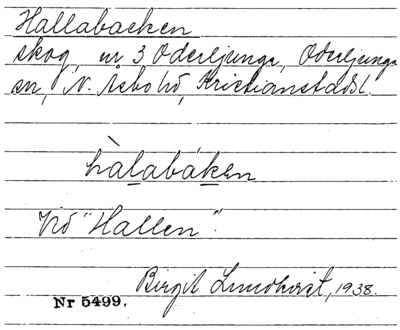 Hallabacken
skog, nr 3 Oderljunga, Oderljunga
sn, N. Åsbo hd, Kristianstads l.
hàlabáken
Vid "Hallen".
Birgit Lundkvist, 1938.
Nr 5499.